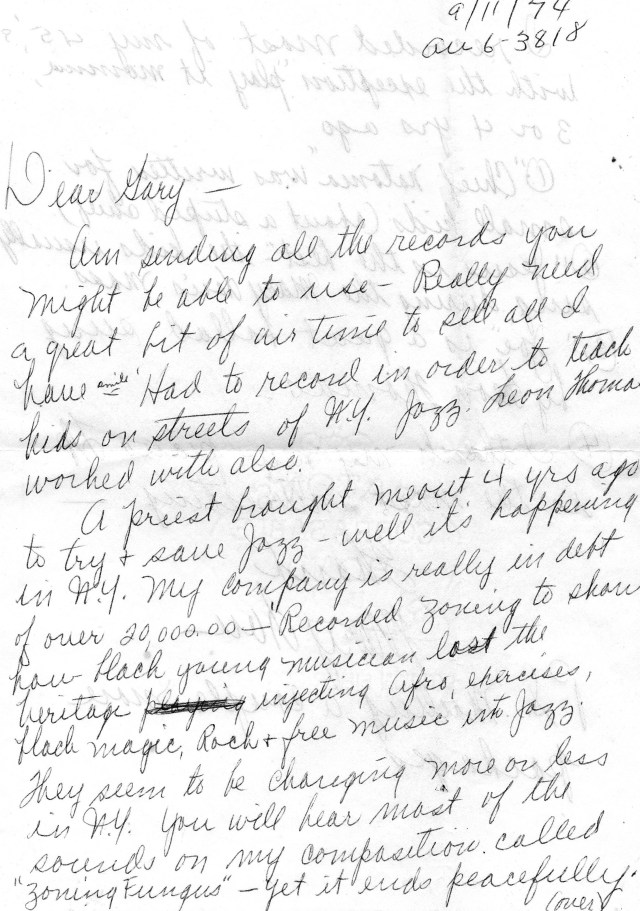 9/11/74
AU6-3818
Dear Gary —
Am sending all the records you
might be able to use — Really need
a great bit of air time to sell all I
have smile Had to record in order to teach
kids on streets of N.Y. Jazz. Leon Thomas
worked with also.
A priest brought me out 4 yrs ago
to try + save Jazz — well it's happening
in N.Y. My company is really in debt
of over 20,000.00 — Recorded Zoning to show
how black young musician lost the
heritage injecting Afro, exercises,
black magic, Rock + free music into Jazz.
They seem to be changing more or less
in N.Y. You will hear most of the
sounds on my composition called
"Zoning Fungus" — yet it ends peacefully.
(over)